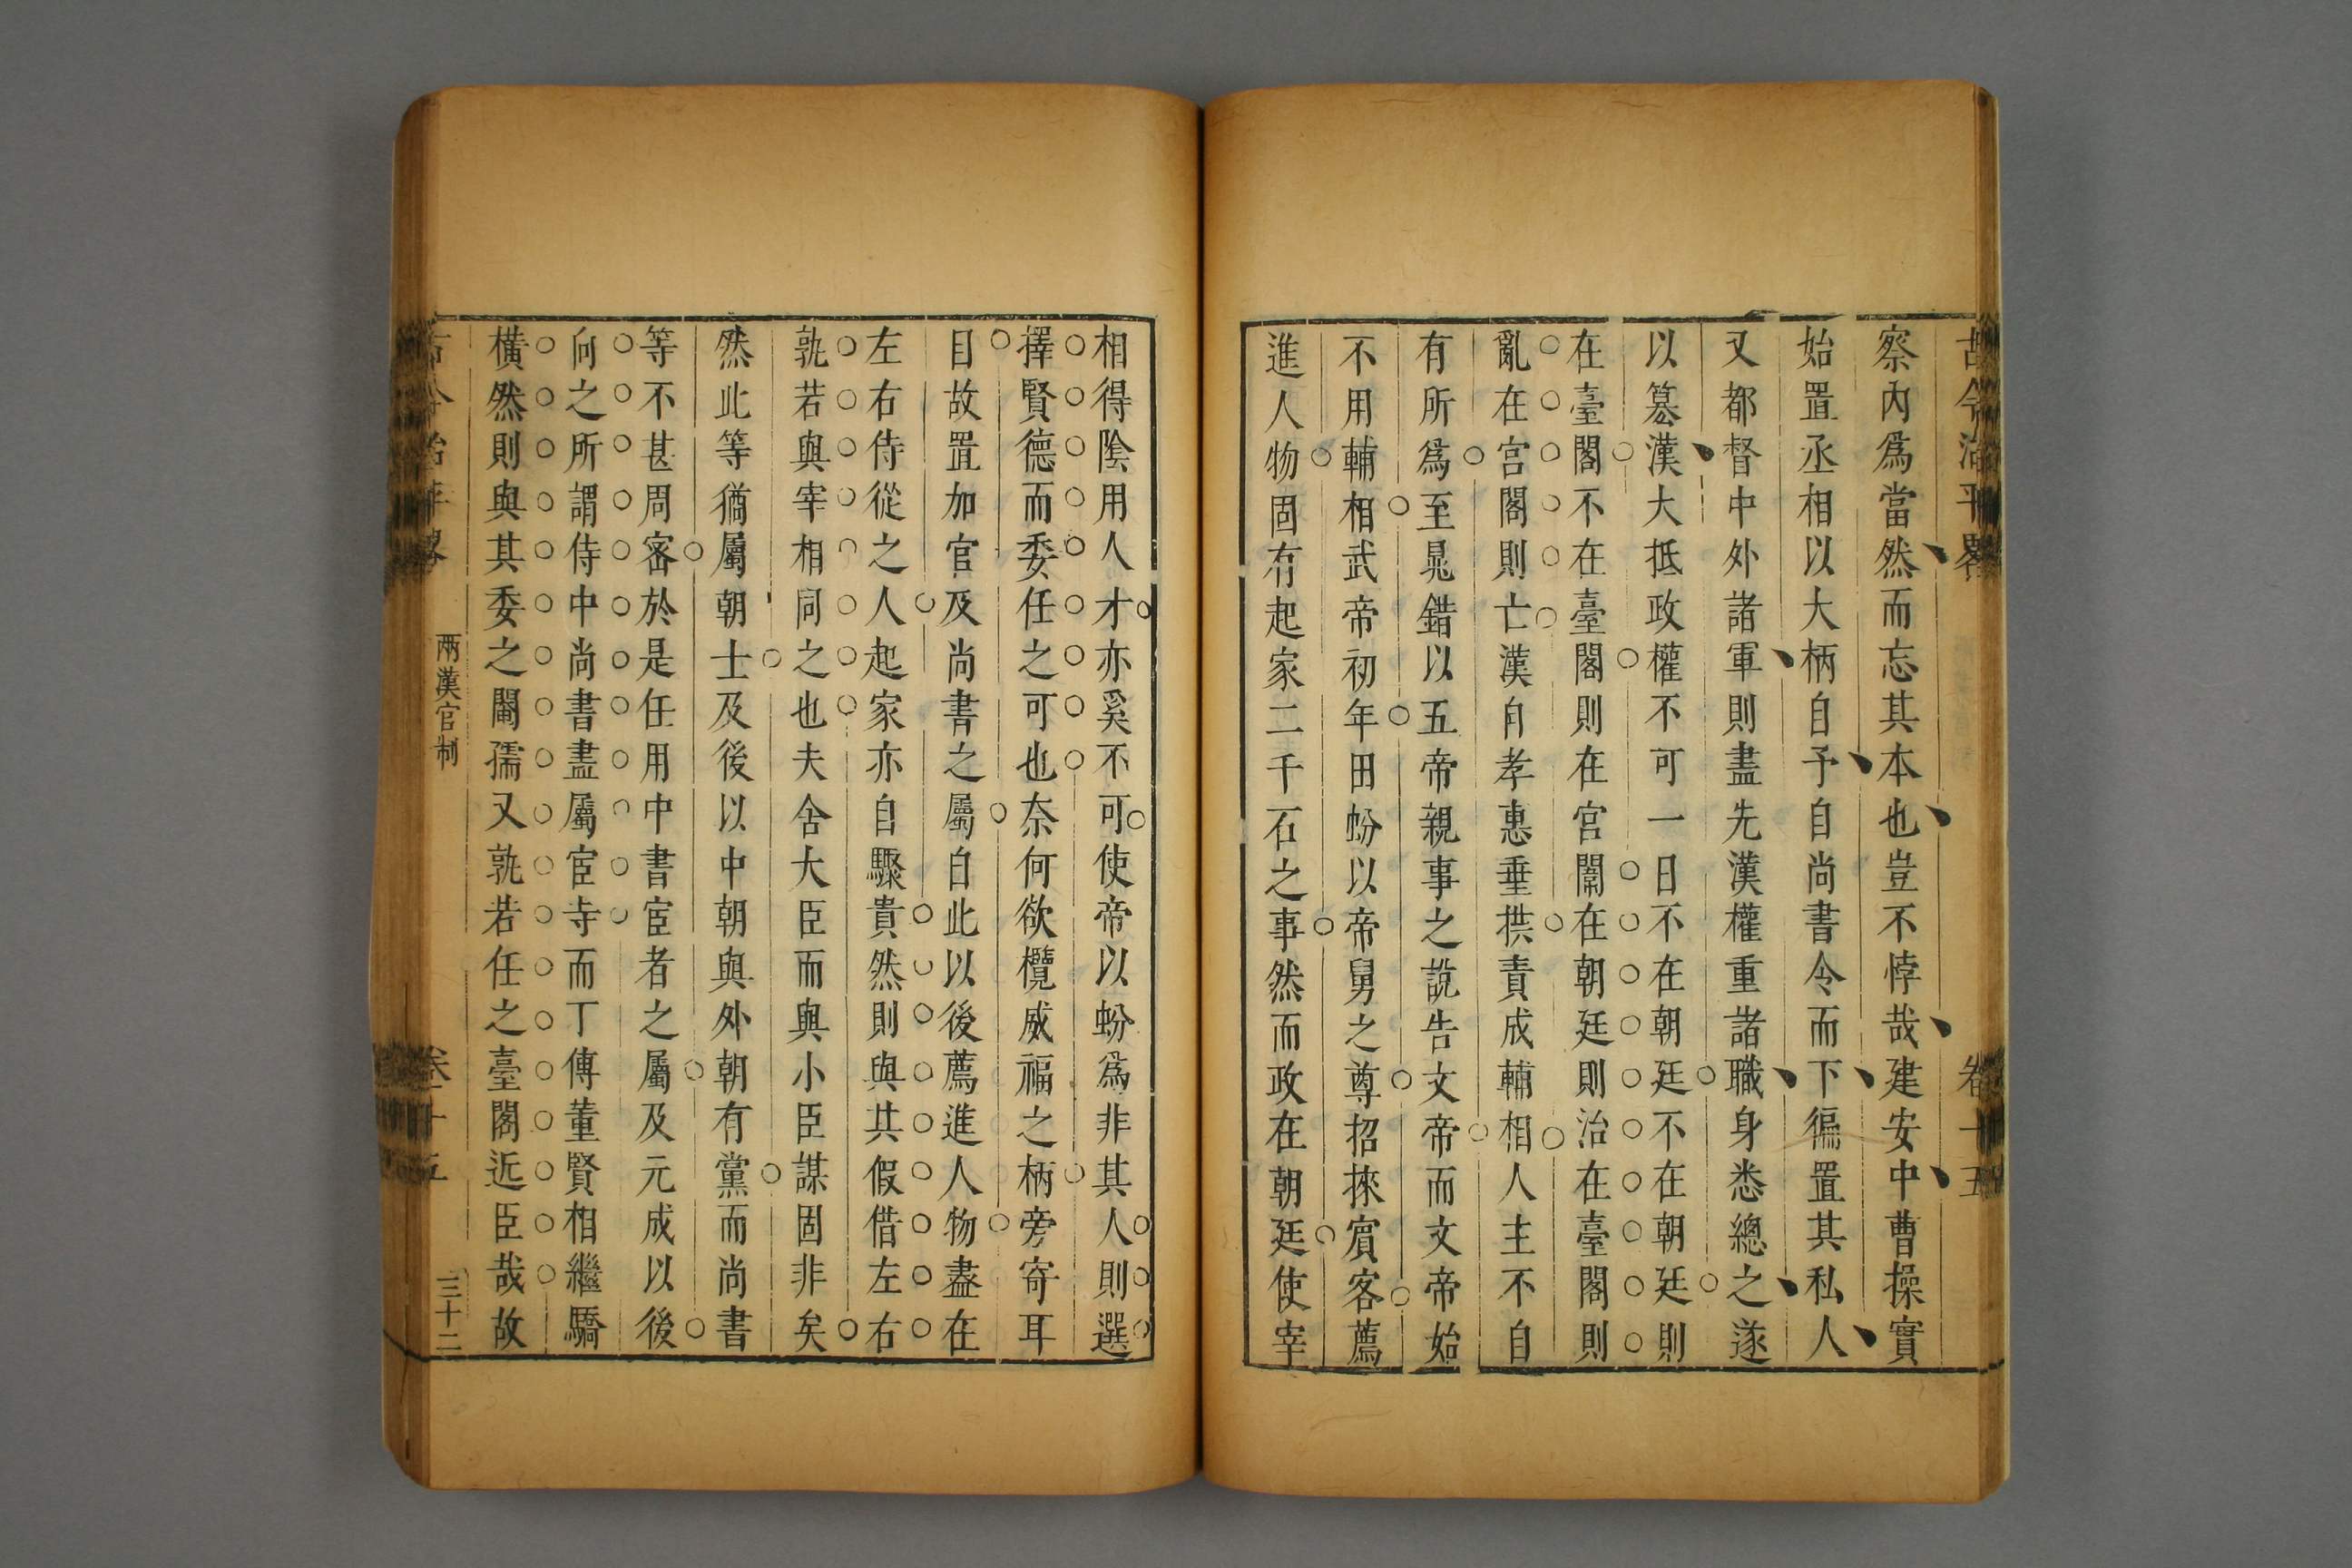 古今治平畧 卷十五
察內爲當然而忘其本也豈不悖哉建安中曹操實
始置丞相以大柄自予自尚書令而下徧置其私人
又都督中外諸軍則盡先漢權重諸職身悉總之遂
以簒漢大抵政權不可一日不在朝廷不在朝廷則
在臺閣不在臺閣則在宮闈在朝廷則治在臺閣則
亂在宮閣則亡漢自孝惠垂拱責成輔相人主不自
有所爲至晁錯以五帝親事之說告文帝而文帝始
不用輔相武帝初年田蚡以帝舅之尊招徠賓客薦
進人物固有起家二千石之事然而政在朝廷使宰
相得陰用人才亦奚不可使帝以蚡爲非其人則選
擇賢德而委任之可也奈何欲欖威福之柄旁寄耳
目故置加官及尚書之屬自此以後薦進人物盡在
左右侍從之人起家亦自驟貴然則與其假借左右
孰若與宰相同之也夫舍大臣而與小臣謀固非矣
然此等猶屬朝士及後以中朝與外朝有黨而尚書
等不甚周密於是任用中書宦者之屬及元成以後
向之所謂侍中尚書盡屬宦寺而丁傳董賢相繼驕
橫然則與其委之閹孺又孰若任之臺閣近臣哉故
古今治平畧 兩漢官制 卷十五 三十二